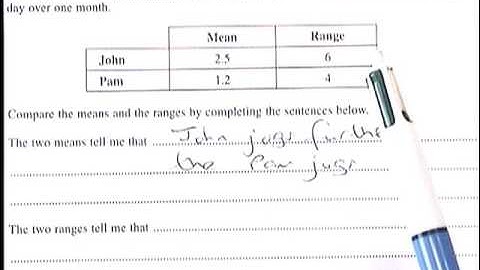 day over one month.
Mean Range
John 2.5 6
Pam 1.2 4
Compare the means and the ranges by completing the sentences below.
The two means tell me that John jogs further
than Pam jogs
The two ranges tell me that